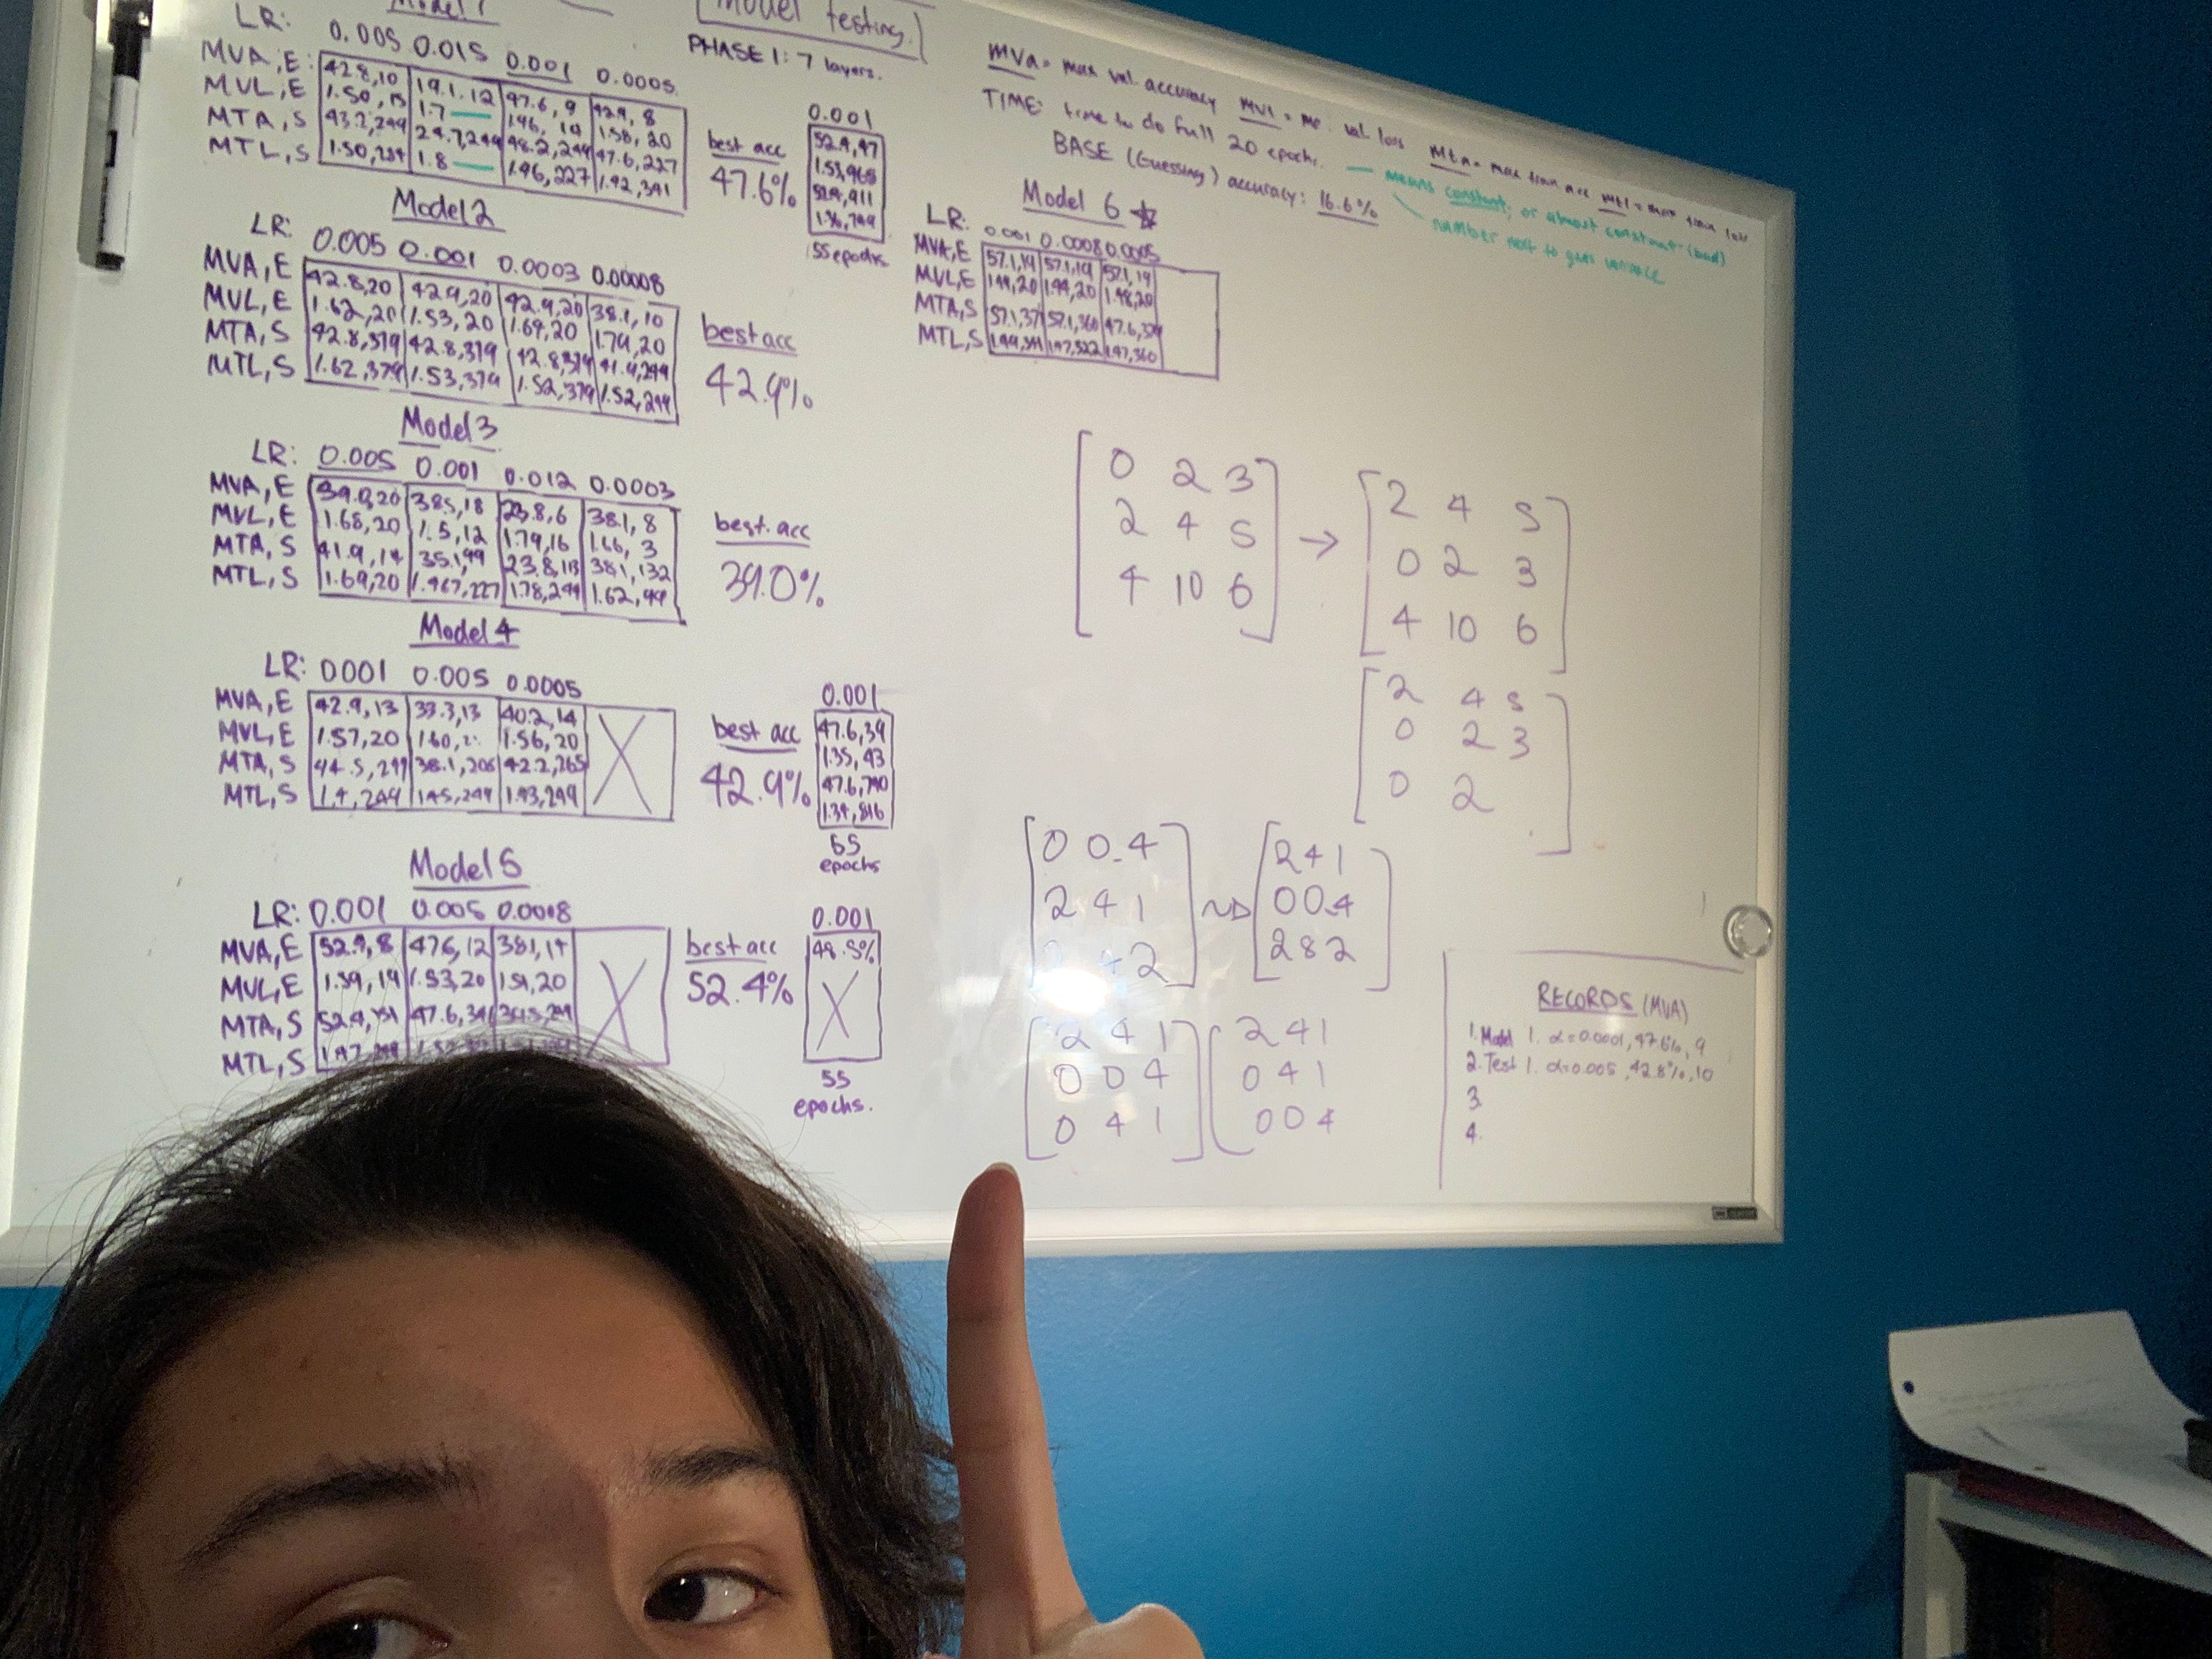 Model 1
LR: 0.005 0.015 0.001 0.0005
MVA, E: 42.8, 10 19.1, 12 47.6, 9 42.9, 8
MVL, E 1.50, 13 1.7 — 1.46, 19 1.58, 20
MTA, S 43.2, 249 24.7, 249 48.2, 249 47.6, 227
MTL, S 1.8 — 1.46, 227 1.42, 341
best acc
47.6%
0.001
52.4, 47
1.53, 965
52.4, 911
55 epochs
Model testing.
PHASE 1: 7 layers.
MVA = max val accuracy MVL = val loss MTA = max train acc MTL = train loss
TIME: time to do full 20 epochs. — means constant, or almost constant (bad)
number next to gives variance
BASE (Guessing) accuracy: 16.6%
Model 2
LR: 0.005 0.001 0.0003 0.00008
MVA, E 42.8, 20 42.9, 20 42.9, 20 38.1, 10
MVL, E 1.62, 20 1.53, 20 1.69, 20 1.74, 20
MTA, S 42.8, 379 42.8, 379 42.8, 379 41.9, 299
MTL, S 1.62, 379 1.53, 379 1.52, 379 1.52, 299
best acc
42.9%
Model 3
LR: 0.005 0.001 0.012 0.0003
MVA, E 39.0, 20 38.5, 18 23.8, 6 38.1, 8
MVL, E 1.68, 20 1.5, 12 1.79, 16 1.66, 3
MTA, S 41.9, 14 35.1, 99 23.8, 113 38.1, 132
MTL, S 1.69, 20 1.467, 227 1.78, 299 1.62, 99
best. acc
39.0%
Model 4
LR: 0001 0.005 0.0005
MVA, E 42.9, 13 33.3, 13 40.2, 14
MVL, E 1.57, 20 1.60, 1.56, 20
MTA, S 44.5, 299 38.1, 208 42.2, 265
MTL, S 1.4, 249 1.45, 249 1.43, 299
X
best acc
42.9%
0.001
47.6, 39
1.35, 43
47.6, 790
1.34, 816
55
epochs
Model 5
LR: 0.001 0.005 0.0008
MVA, E 52.4, 8 47.6, 12 38.1, 14
MVL, E 1.39, 19 1.53, 20 1.51, 20
MTA, S 52.4, 47.6, 341
MTL, S
X
best acc
52.4%
0.001
48.5%
X
55
epochs.
Model 6 ☆
LR: 0.001 0.0008 0.0005
MVA, E 57.1, 19 57.1, 19 57.1, 19
MVL, E 1.49, 20 1.49, 20 1.48, 20
MTA, S 57.1, 57.1, 360 47.6,
MTL, S 1.47, 322 1.47, 360
0 2 3
2 4 5
4 10 6
→
2 4 5
0 2 3
4 10 6
2 4 5
0 2 3
0 2
0 0 4
2 4 1
4 2
2 4 1
0 0 4
2 8 2
2 4 1
0 0 4
0 4 1
2 4 1
0 4 1
0 0 4
RECORDS (MVA)
1. Model 1. α=0.0001, 47.6%, 9
2. Test 1. α=0.005, 42.8%, 10
3.
4.